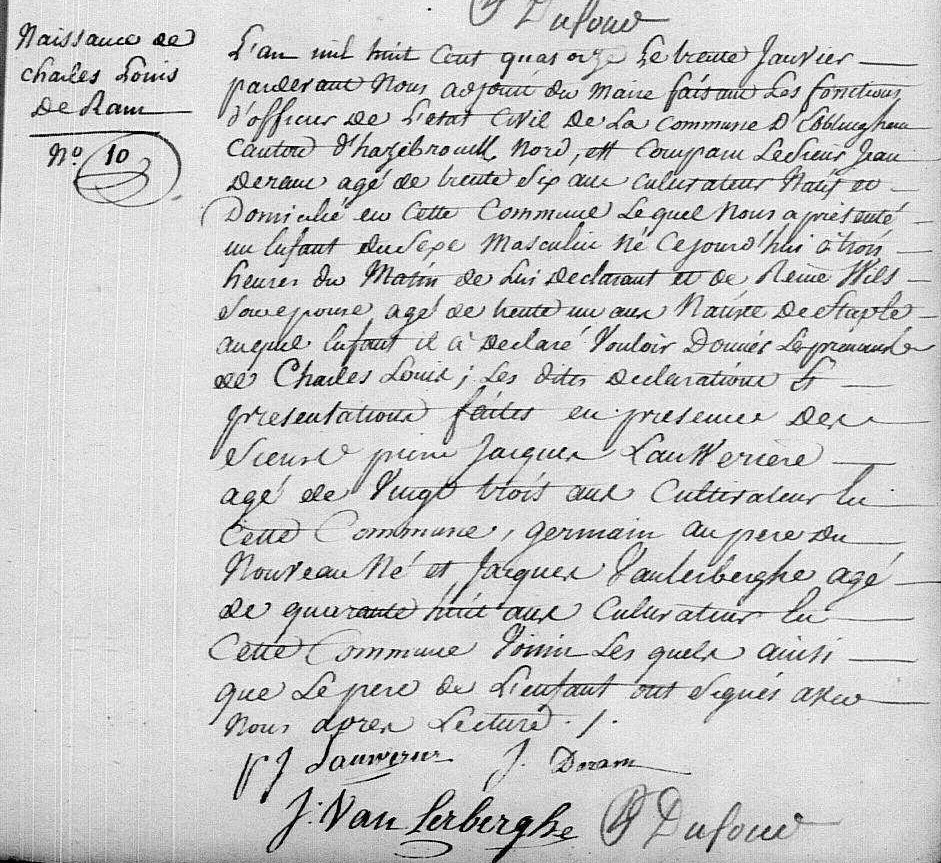 Dufour
Naissance de
Charles Louis
De Ram
N.o 10
L'an mil huit cent quatorze Le trente Janvier
pardevant Nous adjoint du Maire faisant Les fonctions
d'officier De L'état Civil De La Commune D'Ebblinghem
Canton d'hazebrouck Nord, est Comparu Le Sieur Jean
Deram agé de trente Six ans Cultivateur Natif et
Domicilié en Cette Commune Lequel Nous a présenté
un Enfant du Sexe Masculin Né Cejourd'hui à trois
heures du Matin de Lui Declarant et de Reine Wils
Son epouse agé de trente un ans Native De Staple
auquel Enfant il à Declaré Vouloir Donner Les prenoms
de Charles Louis ; Les dites Declarations Et
présentations faites en presence Des
Sieurs pierre Jacques Lauwerière
agé de Vingt trois ans Cultivateur En
Cette Commune, germain au pere du
Nouveau Né et Jacques Vanlerberghe agé
de quarante huit ans Cultivateur En
Cette Commune Voisin Les quels ainsi
que Le pere de L'enfant ont Signés avec
Nous après Lecture ./.
P J Lauwerier J. Deram
J: Van Lerberghe Dufour